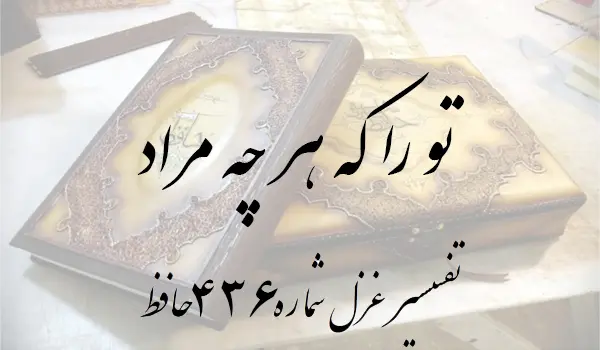 تو را که هر چه مراد
تفسیر غزل شماره ۴۳۶ حافظ